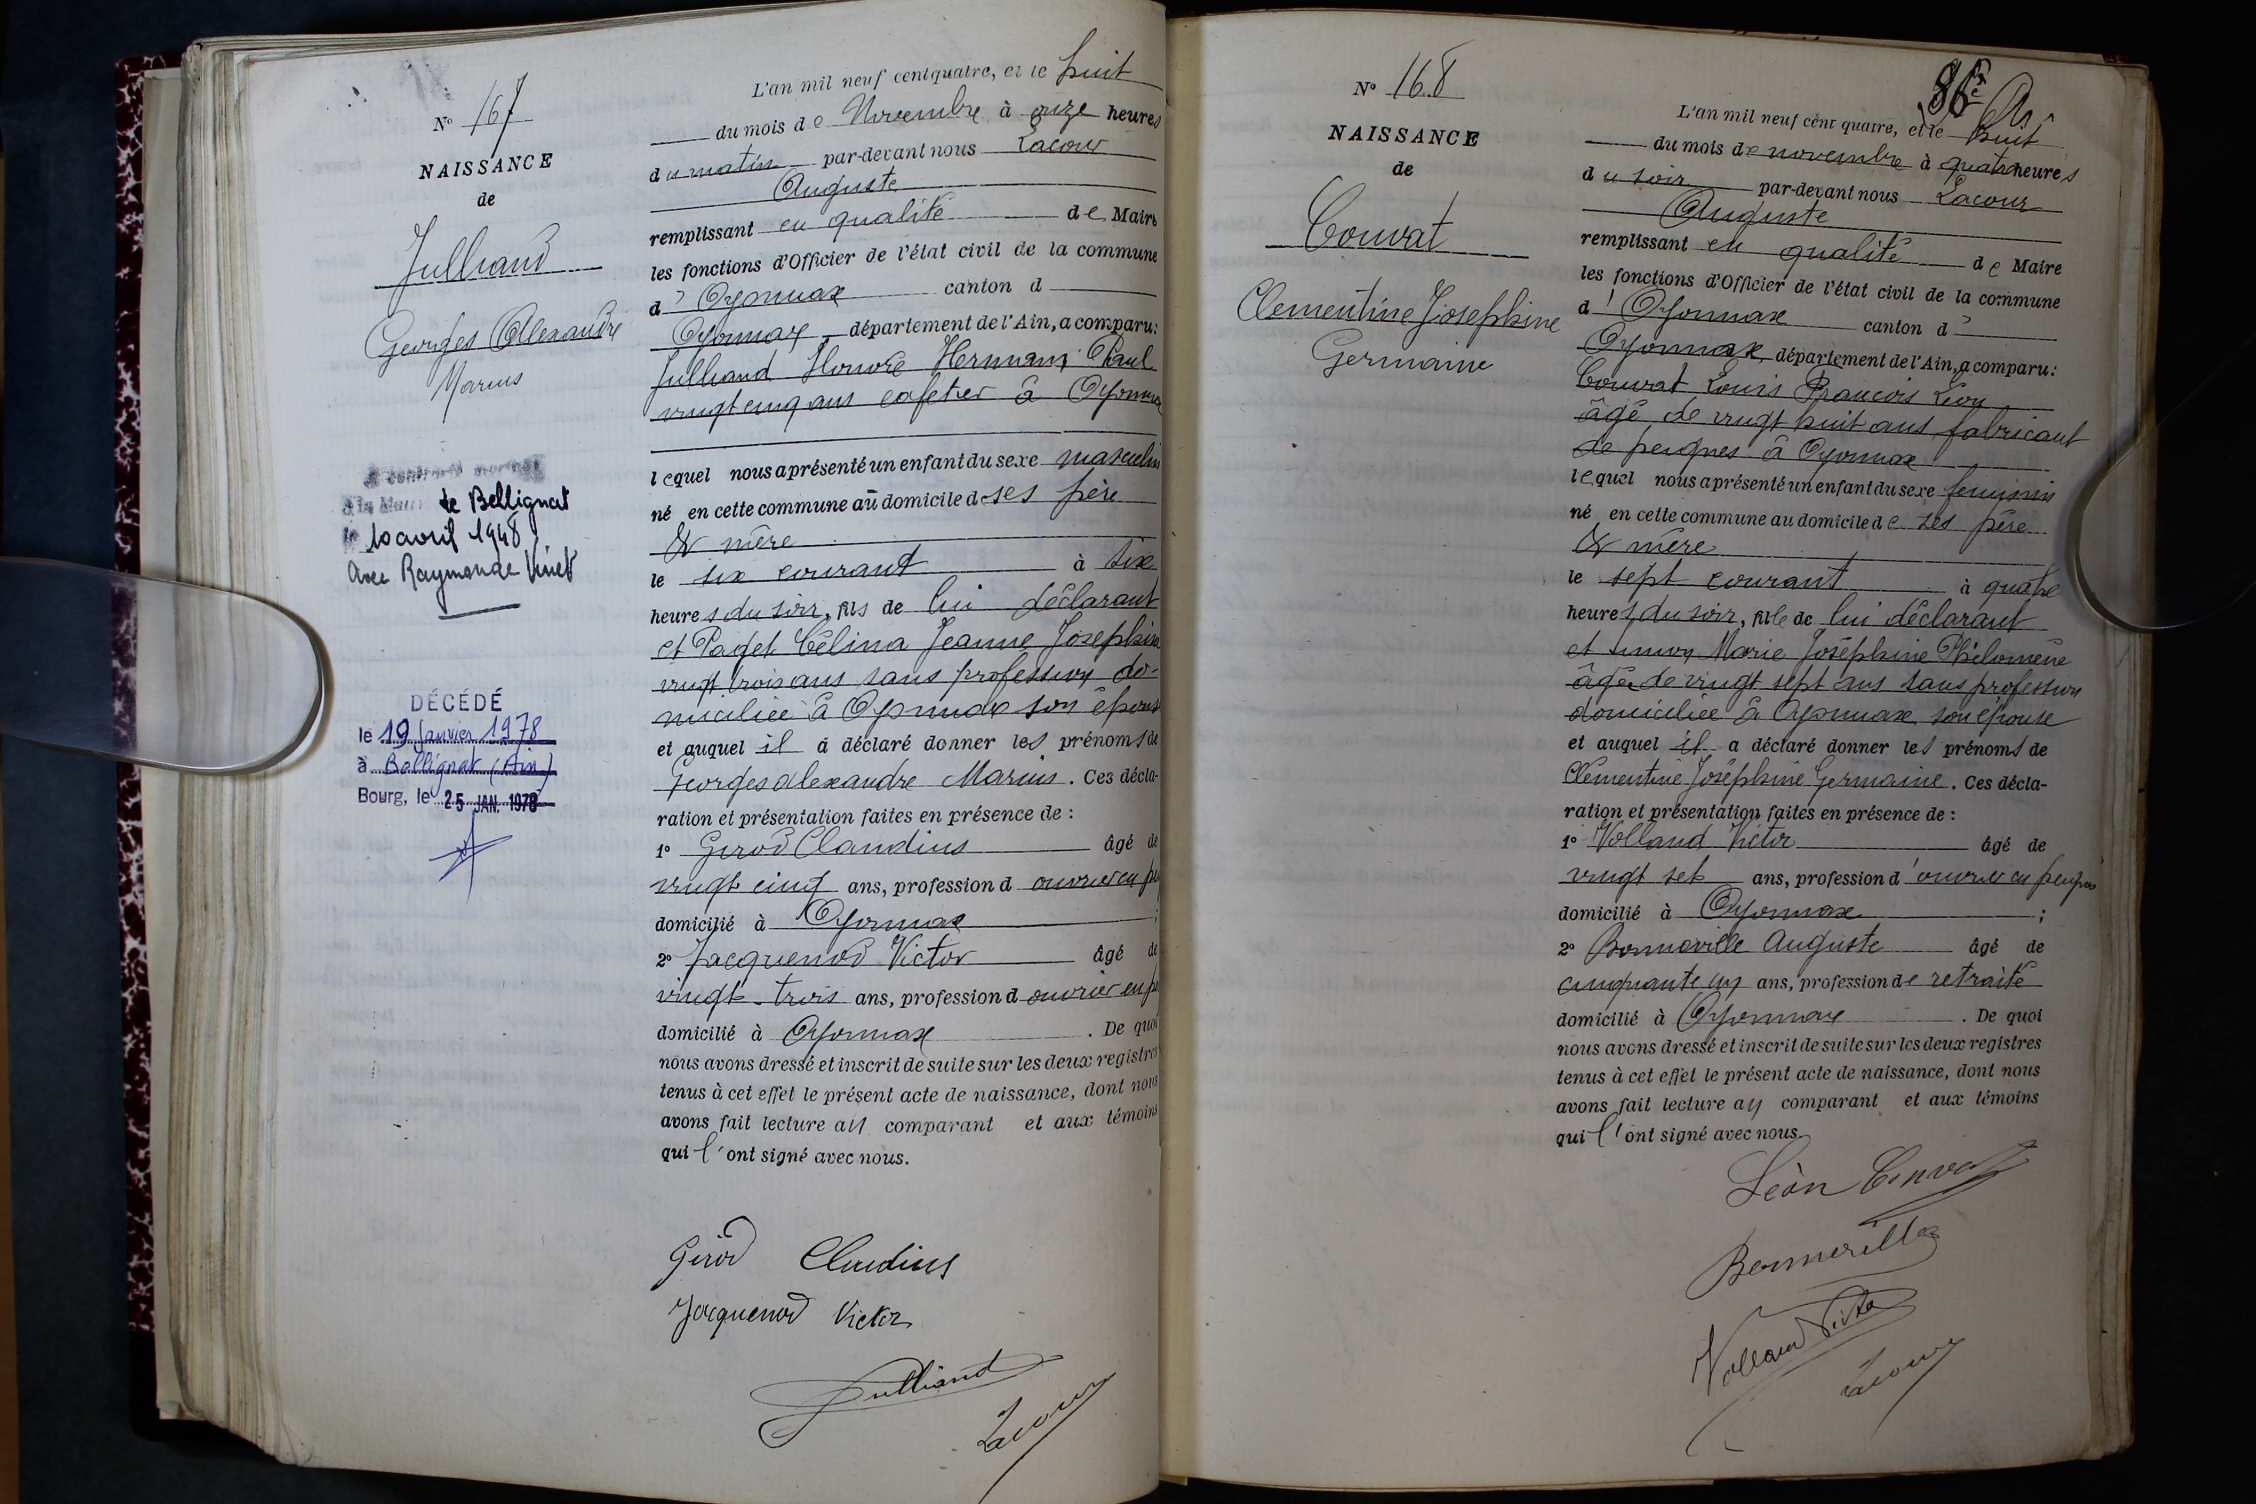 N° 167
NAISSANCE
de
Julliand
Georges Alexandre
Marius
de Bellignat
le 10 avril 1948
avec Raymonde Vinet
DÉCÉDÉ
le 19 Janvier 1978
à Bellignat (Ain)
Bourg, le 25 JAN. 1978
L'an mil neuf cent quatre, et le huit
du mois de Novembre à onze heures
du matin par-devant nous Lacour
Auguste
remplissant en qualité de Maire
les fonctions d'Officier de l'état civil de la commune
d' Oyonnax canton d
Oyonnax département de l'Ain, a comparu:
Julliand Honoré Hermann Paul
vingt cinq ans cafetier à Oyonnax
lequel nous a présenté un enfant du sexe masculin
né en cette commune au domicile de ses père
& mère
le six courant à six
heures du soir, fils de lui déclarant
et Paget Célina Jeanne Josephine
vingt trois ans sans profession do-
miciliée à Oyonnax son épouse
et auquel il a déclaré donner les prénoms de
Georges alexandre Marius. Ces décla-
ration et présentation faites en présence de :
1° Girod Claudius âgé de
vingt cinq ans, profession d ouvrier en pei
domicilié à Oyonnax ;
2° Jacquenod Victor âgé de
vingt-trois ans, profession d ouvrier en pe
domicilié à Oyonnax . De quoi
nous avons dressé et inscrit de suite sur les deux registres
tenus à cet effet le présent acte de naissance, dont nous
avons fait lecture au comparant et aux témoins
qui l'ont signé avec nous.
Girod Claudius
Jacquenod Victor
Julliand
Lacour
86e
N° 168
NAISSANCE
de
Couvat
Clementine Josephine
Germaine
L'an mil neuf cent quatre, et le huit
du mois de novembre à quatre heures
du soir par-devant nous Lacour
Auguste
remplissant en qualité de Maire
les fonctions d'Officier de l'état civil de la commune
d' Oyonnax canton d'
Oyonnax département de l'Ain, a comparu:
Couvat Louis François Léon
âgé de vingt huit ans fabricant
de peignes à Oyonnax
lequel nous a présenté un enfant du sexe feminin
né en cette commune au domicile de ses père
& mère
le sept courant à quatre
heures du soir, fille de lui déclarant
et Marie Joséphine Philomène
âgée de vingt sept ans sans profession
domiciliée à Oyonnax son épouse
et auquel il a déclaré donner les prénoms de
Clémentine Joséphine Germaine. Ces décla-
ration et présentation faites en présence de :
1° Volland Victor âgé de
vingt set ans, profession d'ouvrier en peignes
domicilié à Oyonnax ;
2° Bonneville Auguste âgé de
cinquante un ans, profession de retraité
domicilié à Oyonnax . De quoi
nous avons dressé et inscrit de suite sur les deux registres
tenus à cet effet le présent acte de naissance, dont nous
avons fait lecture au comparant et aux témoins
qui l'ont signé avec nous.
Léon Couvat
Bonneville
Volland Victor
Lacour